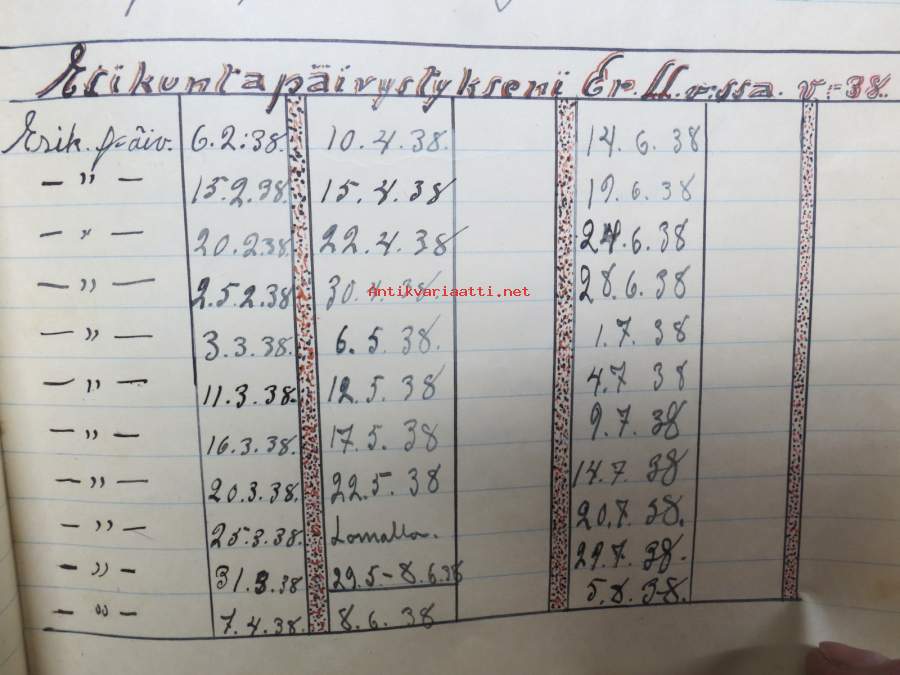 Esikuntapäivystykseni Er.U.o:ssa. v:-38.
Esik. p-äiv. 6.2.:38. 10.4.38. 14.6.38
— " — 15.2.38. 15.4.38 19.6.38
— " — 20.2.38. 22.4.38 24.6.38
— " — 2.5.2.38 30.4.38. 28.6.38
— " — 3.3.38. 6.5.38. 1.7.38
— " — 11.3.38. 12.5.38 4.7 38
— " — 16.3.38. 17.5.38 9.7.38
— " — 20.3.38. 22.5.38 14.7.38
— " — 25.3.38. Lomalla. 20.7.38.
— " — 31.3.38 29.5-8.6.38 29.7.38.
— " — 7.4.38. 8.6.38 5.8.38.
Antikvariaatti.net